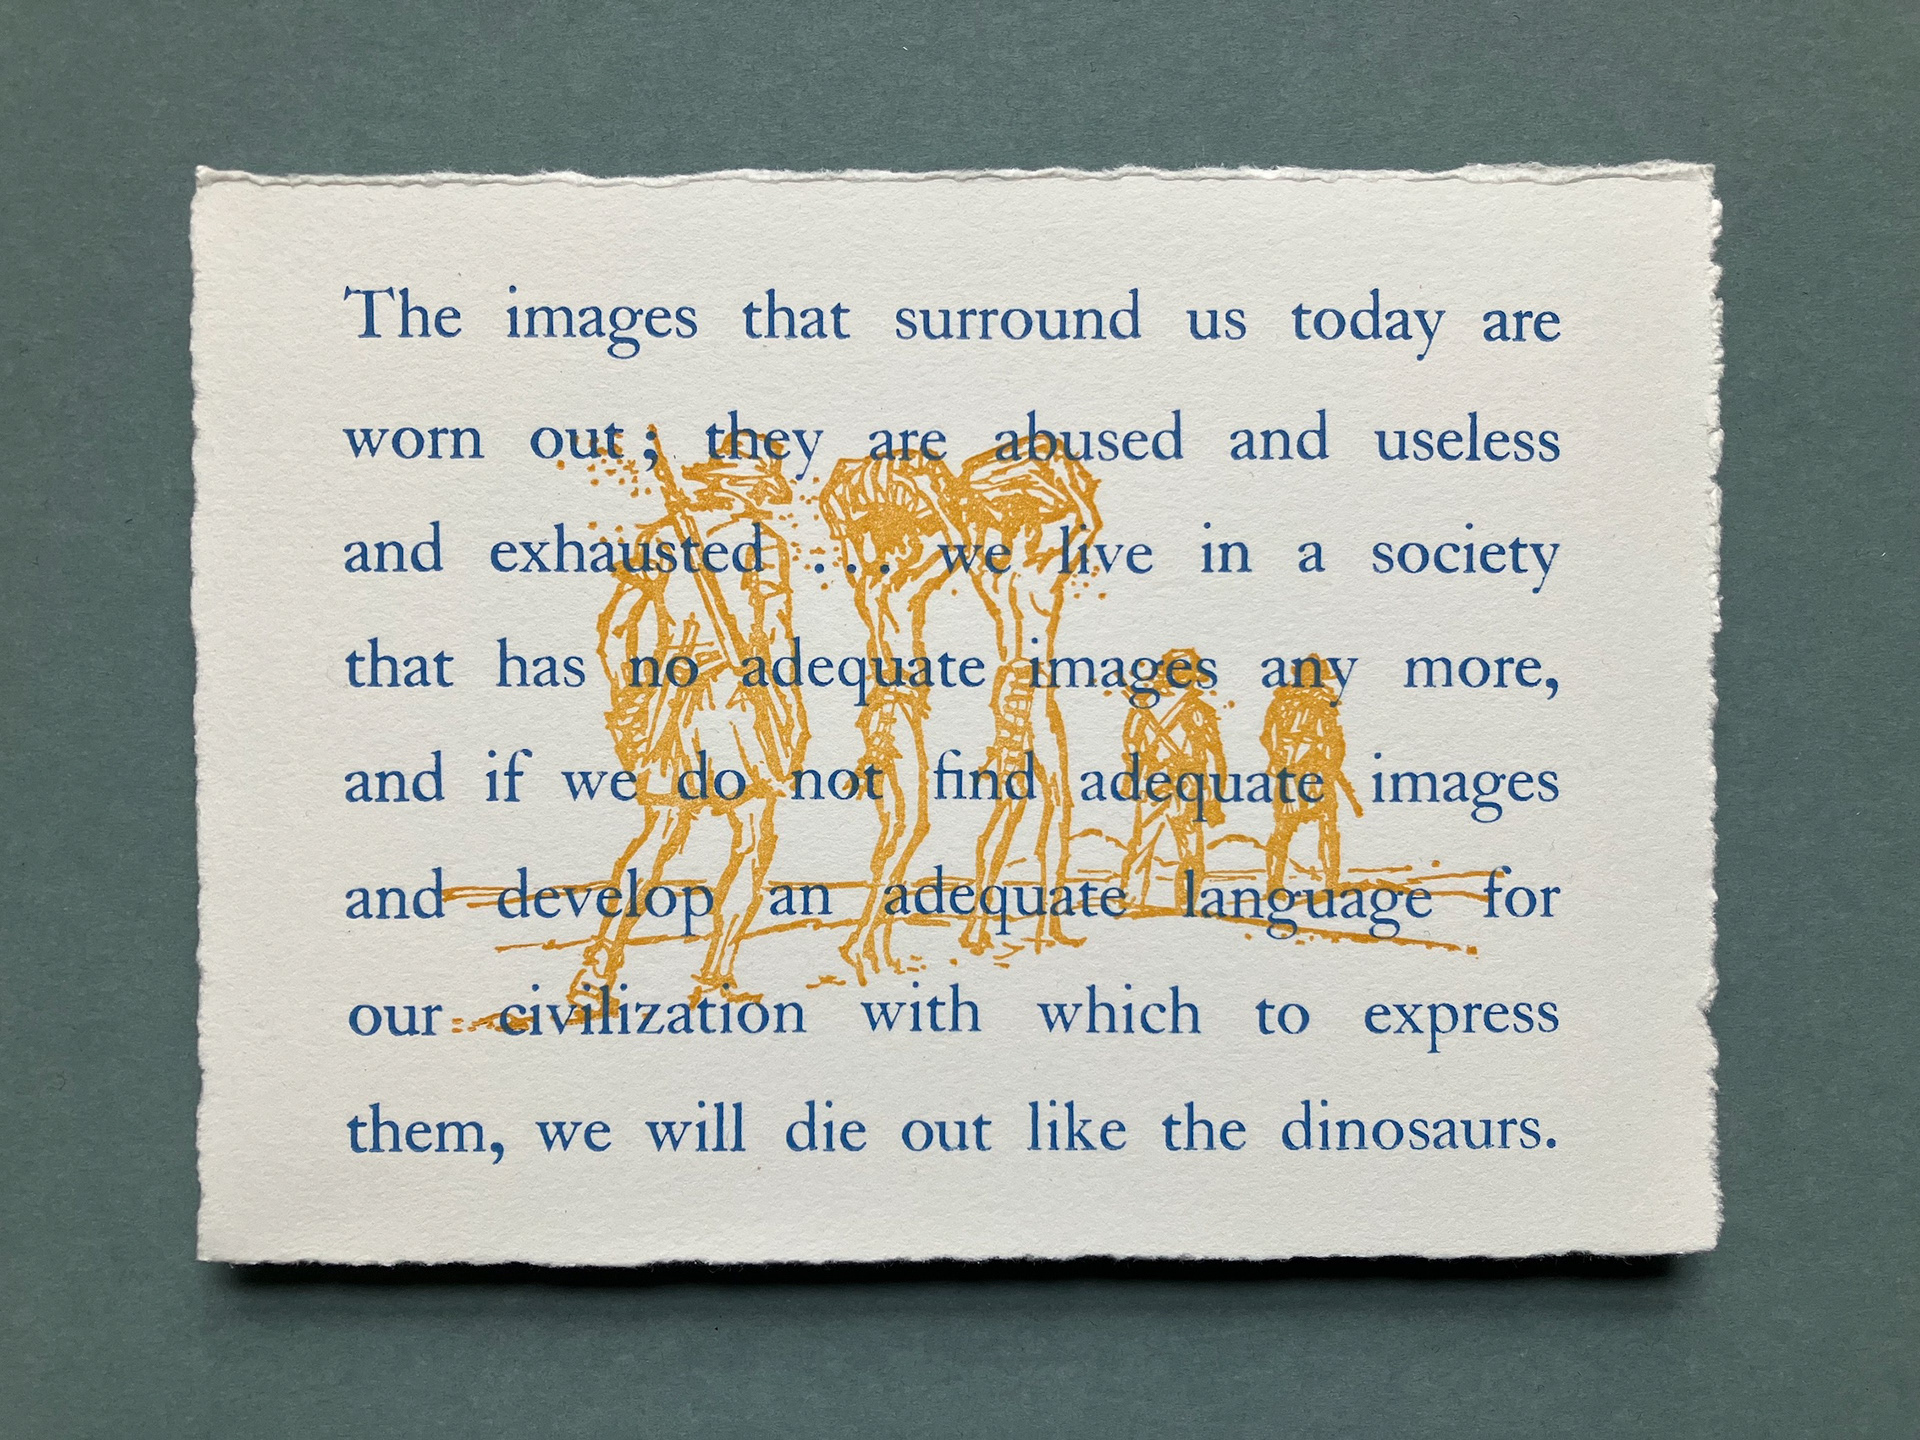 The images that surround us today are
worn out ; they are abused and useless
and exhausted . . . we live in a society
that has no adequate images any more,
and if we do not find adequate images
and develop an adequate language for
our civilization with which to express
them, we will die out like the dinosaurs.